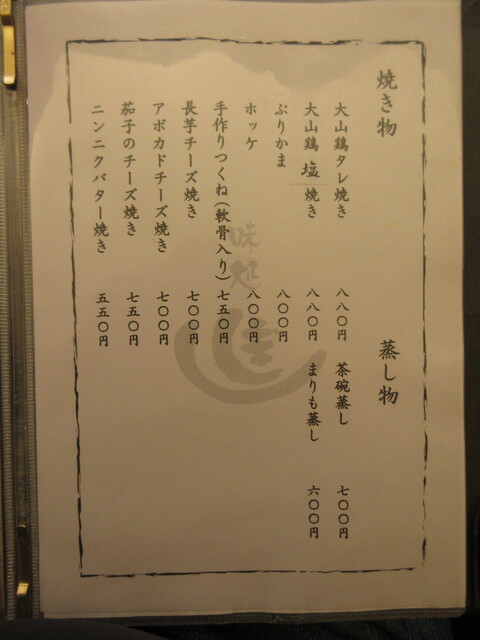 焼き物
大山鶏タレ焼き 八八〇円
大山鶏 塩 焼き 八八〇円
ぶりかま 八〇〇円
ホッケ 八〇〇円
手作りつくね(軟骨入り) 七五〇円
長芋チーズ焼き 七〇〇円
アボカドチーズ焼き 七〇〇円
茄子のチーズ焼き 七五〇円
ニンニクバター焼き 五五〇円
蒸し物
茶碗蒸し 七〇〇円
まりも蒸し 六〇〇円
味処